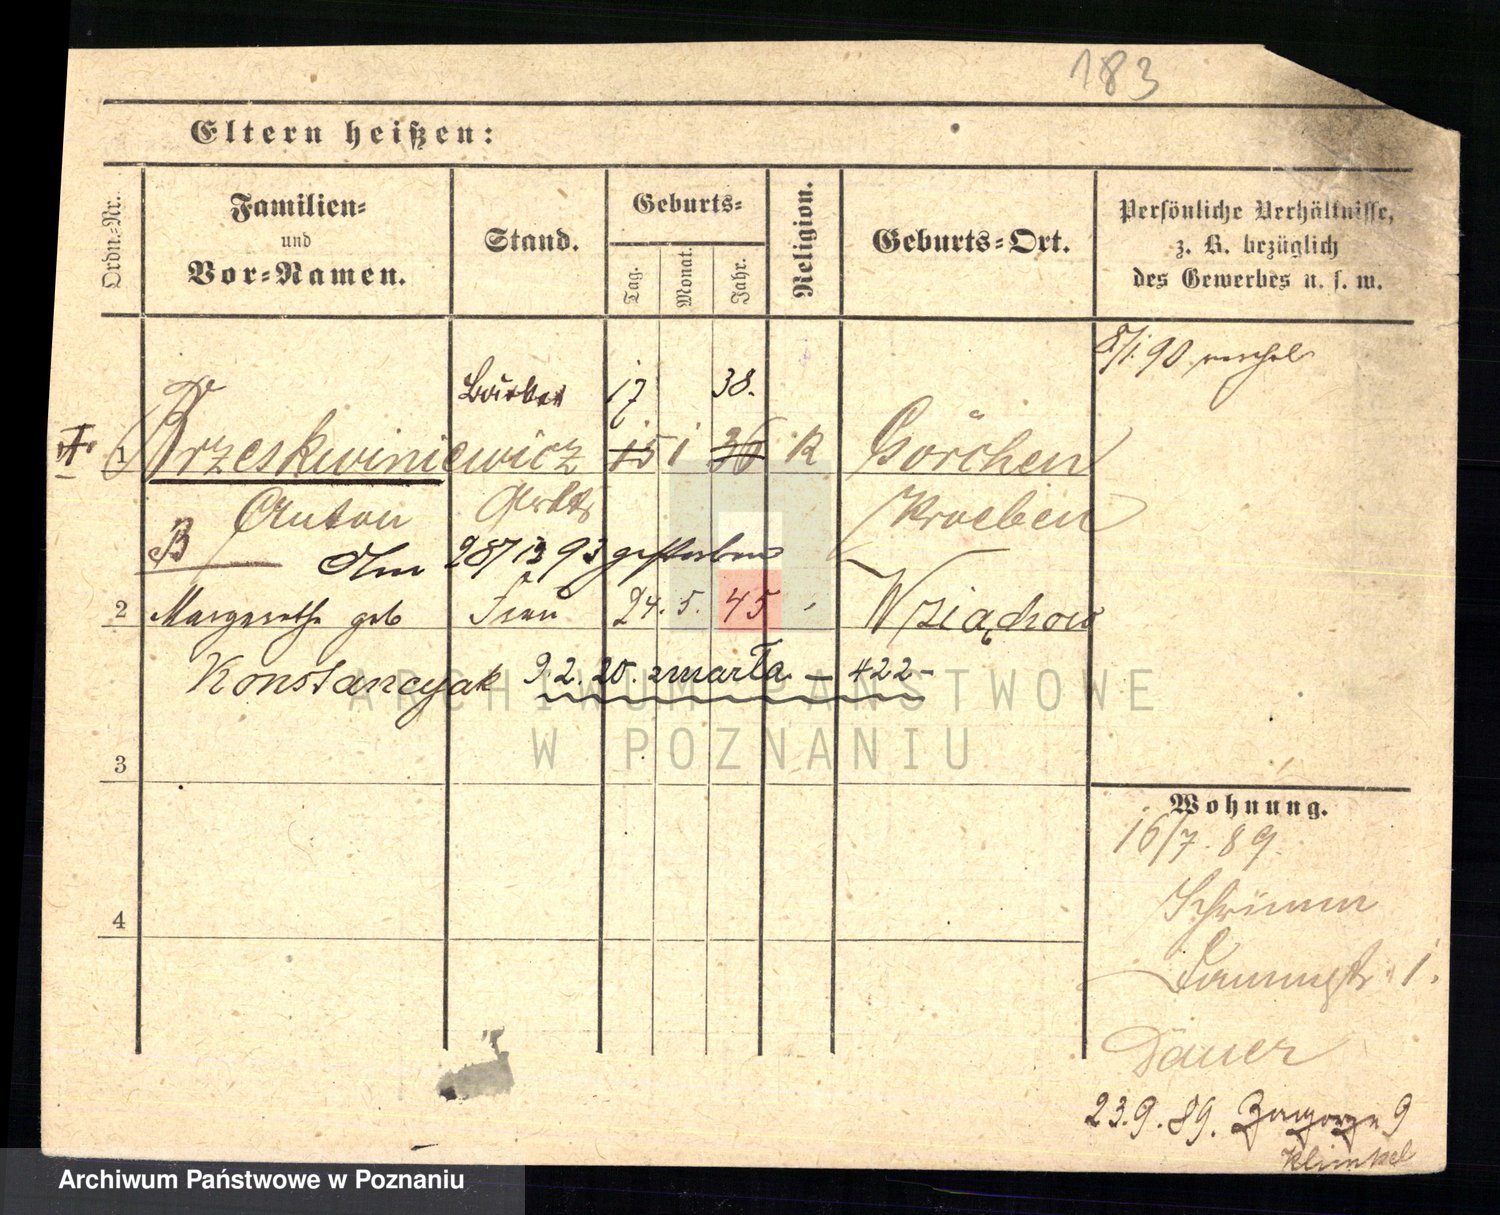 183
Eltern heißen:
Ordn.-Nr.
Familien-
und
Vor-Namen.
Stand.
Geburts-
Tag.
Monat.
Jahr.
Religion.
Geburts-Ort.
Persönliche Verhältnisse,
z. B. bezüglich
des Gewerbes u. s. w.
8/1. 90
17 38.
1 Brzeskwiniewicz 15 1 36 R Görchen
Anton Kroeben
B Am 28/12 93 gestorben
2 Margarethe geb Frau 24. 5. 45 Wziąchow
Konstanczak 9.2.20. zmarła — 422-
3
Wohnung.
16/7. 89.
Schrimm
1.
Dauer
4
23.9.89. Zagorze 9
ARCHIWUM PAŃSTWOWE
W POZNANIU
Archiwum Państwowe w Poznaniu